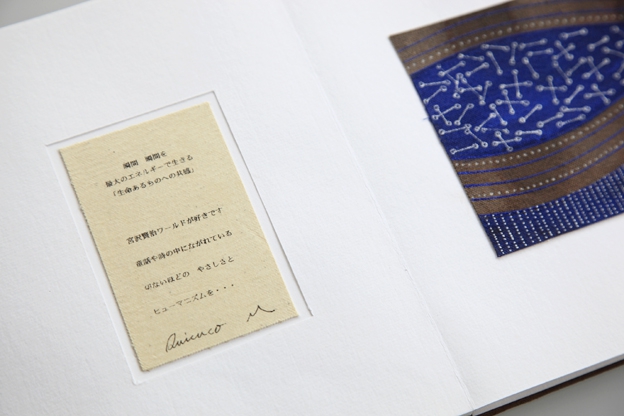 瞬間 瞬間を
最大のエネルギーで生きる
「生命あるものへの共通」
宮沢賢治ワールドが好きです
童話や詩の中にながれている
切ないほどの やさしさと
ヒューマニズムを・・・